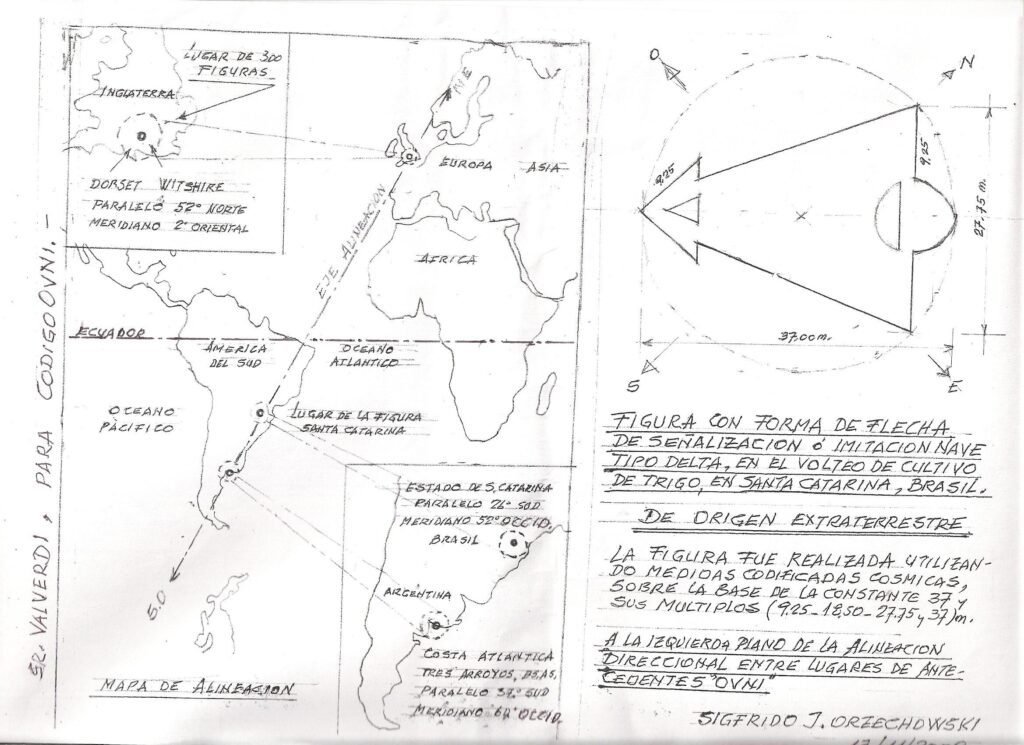 SR. VALVERDI, PARA CODIGO OVNI.-
LUGAR DE 300
FIGURAS
INGLATERRA
DORSET WITSHIRE
PARALELO 52° NORTE
MERIDIANO 2° ORIENTAL
NE
EUROPA ASIA
EJE ALINEACION
AFRICA
ECUADOR
AMERICA
DEL SUD
OCEANO
ATLANTICO
OCEANO
PACIFICO
LUGAR DE LA FIGURA
SANTA CATARINA
S.O
ESTADO DE S, CATARINA
PARALELO 26° SUD
MERIDIANO 52° OCCID.
BRASIL
ARGENTINA
COSTA ATLANTICA
TRES ARROYOS, BS.AS,
PARALELO 37° SUD
MERIDIANO 60° OCCID.
MAPA DE ALINEACION
O
N
9,25
9,25
27,75 m.
37,00 m.
S
E
FIGURA CON FORMA DE FLECHA
DE SEÑALIZACION ó IMITACION NAVE
TIPO DELTA, EN EL VOLTEO DE CULTIVO
DE TRIGO, EN SANTA CATARINA, BRASIL.
DE ORIGEN EXTRATERRESTRE
LA FIGURA FUE REALIZADA UTILIZAN-
DO MEDIDAS CODIFICADAS COSMICAS,
SOBRE LA BASE DE LA CONSTANTE 37 y
SUS MULTIPLOS (9,25-18,50-27,75 y 37)m.
A LA IZQUIERDA PLANO DE LA ALINEACION
DIRECCIONAL ENTRE LUGARES DE ANTE-
CEDENTES "OVNI"
SIGFRIDO J. ORZECHOWSKI